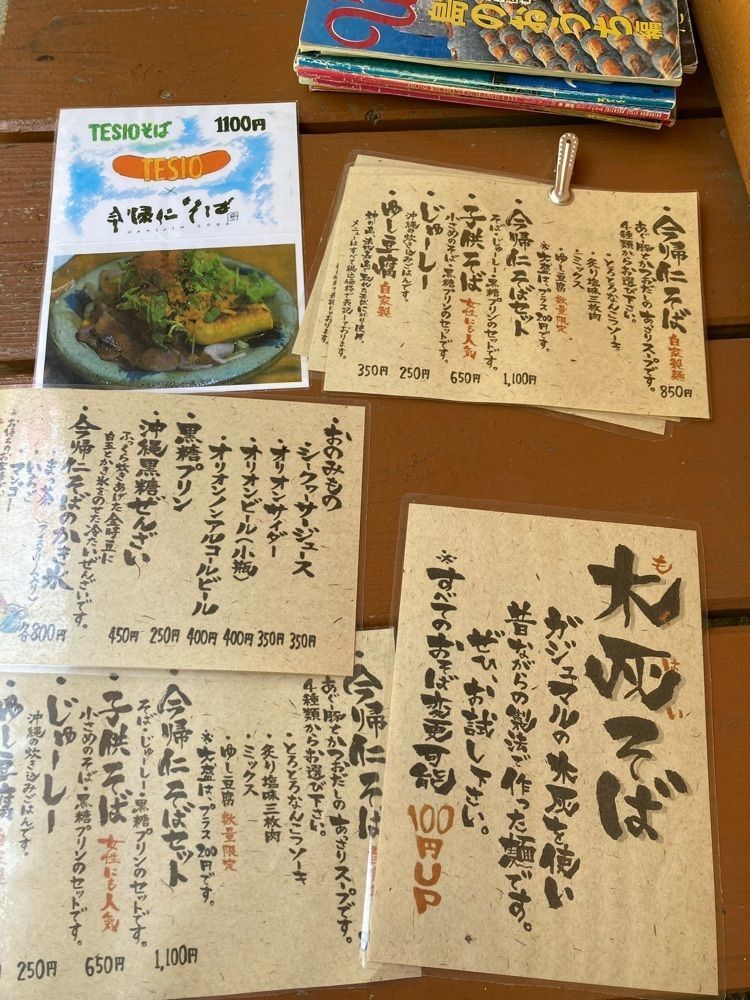 島のおうち編
TESIOそば 1100円
TESIO
×
今帰仁そば
NAKIJIN SOBA
・今帰仁そば 自家製麺 850円
あぐー豚とかつおだしのあっさりスープです。
4種類からお選び下さい。
・とろとろなんこつソーキ
・炙り塩味三枚肉
・ミックス
・ゆし豆腐 数量限定
※大盛は、プラス200円です。
・今帰仁そばセット 1,100円
そば・じゅーしー・黒糖プリンのセットです。
・子供そば 女性にも人気 650円
小さめのそば・黒糖プリンのセットです。
・じゅーしー 250円
沖縄の炊き込みごはんです。
・ゆし豆腐 自家製 350円
メニューはすべて税込価格で表記しております。
・おのみもの
・シークァーサージュース 350円
・オリオンサイダー 350円
・オリオンビール(小瓶) 400円
・オリオンノンアルコールビール 400円
・黒糖プリン 250円
・沖縄黒糖ぜんざい 450円
ふっくら炊きあげた金時豆に
白玉とかき氷をのせた冷たいぜんざいです。
・今帰仁そばのかき氷 各800円
・まっ茶 (アイスクリーム入り)
・いちご
・マンゴー
木灰そば
もくはい
ガジュマルの木灰を使い
昔ながらの製法で作った麺です。
ぜひ、お試し下さい。
※すべてのおそば変更可能 100円UP
・今帰仁そば
あぐー豚とかつおだしのあっさりスープです。
4種類からお選び下さい。
・とろとろなんこつソーキ
・炙り塩味三枚肉
・ミックス
・ゆし豆腐 数量限定
※大盛は、プラス200円です。
・今帰仁そばセット 1,100円
そば・じゅーしー・黒糖プリンのセットです。
・子供そば 女性にも人気 650円
小さめのそば・黒糖プリンのセットです。
・じゅーしー 250円
沖縄の炊き込みごはんです。
ゆし豆腐